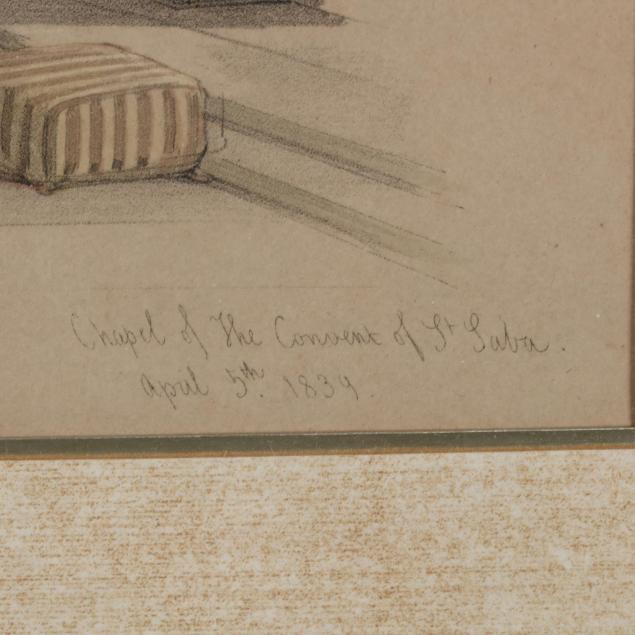 Chapel of The Convent of St Saba.
April 5th. 1839.